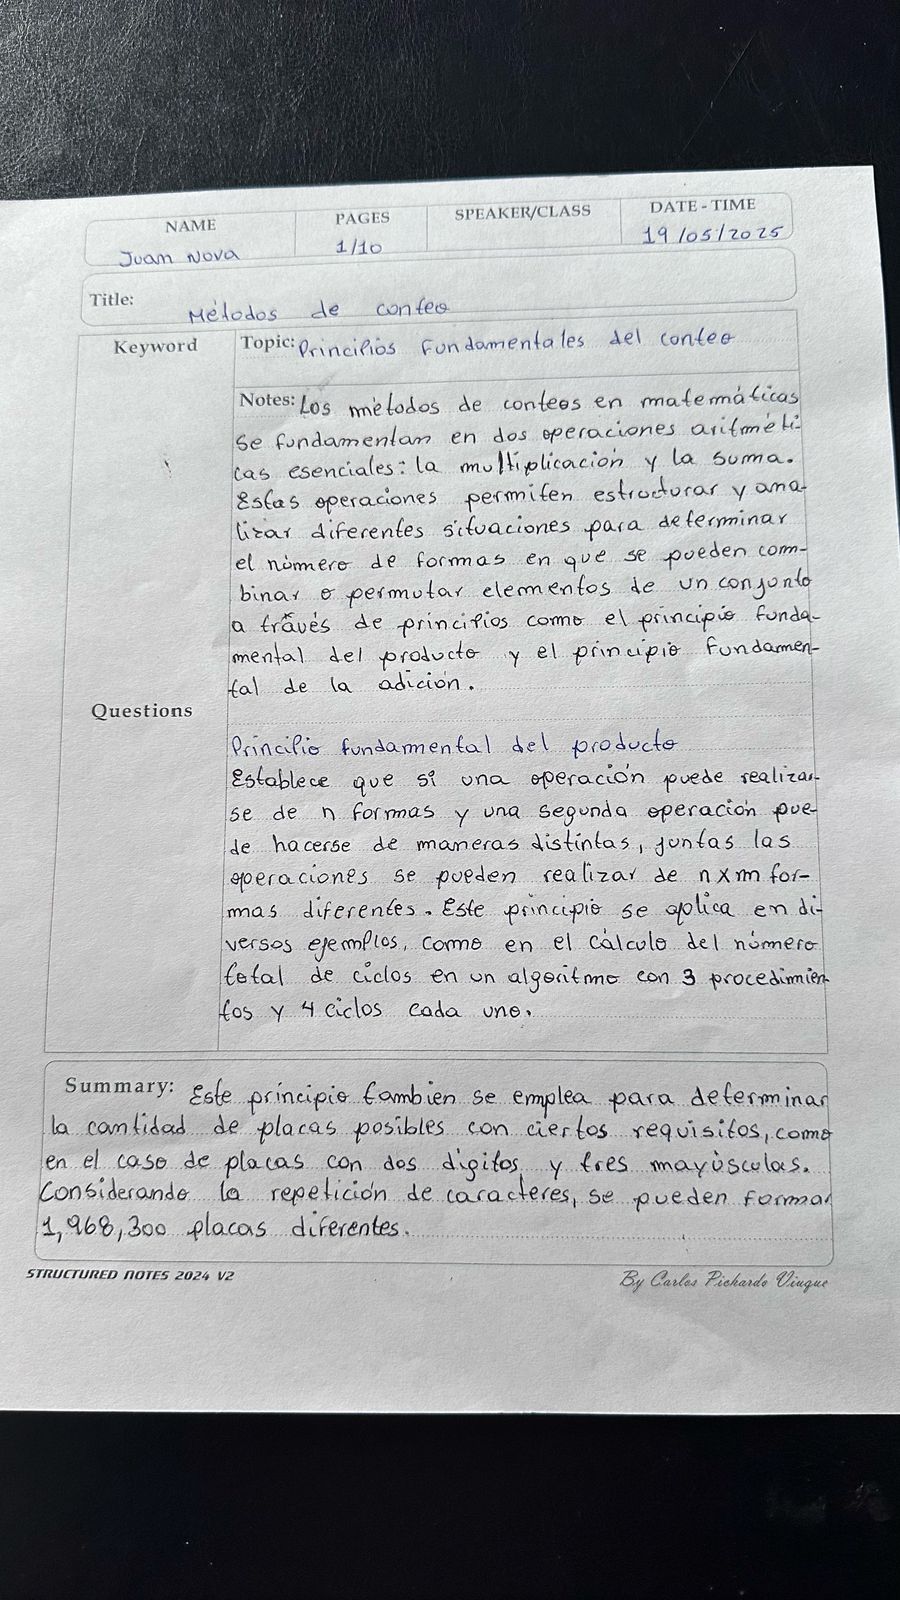 NAME PAGES SPEAKER/CLASS DATE-TIME
Juan Nova 1/10 19/05/2025
Title: Métodos de conteo
Keyword Topic: Principios Fundamentales del conteo
Notes: Los métodos de conteos en matemáticas
se fundamentan en dos operaciones aritméti-
cas esenciales: la multiplicación y la suma.
Estas operaciones permiten estructurar y ana-
lizar diferentes situaciones para determinar
el número de formas en que se pueden com-
binar o permutar elementos de un conjunto
a través de principios como el principio funda-
mental del producto y el principio fundamen-
tal de la adición.
Questions
Principio fundamental del producto
Establece que si una operación puede realizar-
se de n formas y una segunda operación pue-
de hacerse de maneras distintas, juntas las
operaciones se pueden realizar de nxm for-
mas diferentes. Este principio se aplica en di-
versos ejemplos, como en el cálculo del número
total de ciclos en un algoritmo con 3 procedimien-
tos y 4 ciclos cada uno.
Summary: Este principio tambien se emplea para determinar
la cantidad de placas posibles con ciertos requisitos, como
en el caso de placas con dos dígitos y tres mayúsculas.
Considerando la repetición de caracteres, se pueden formar
1,968,300 placas diferentes.
STRUCTURED NOTES 2024 V2 By Carlos Pichardo Viuque